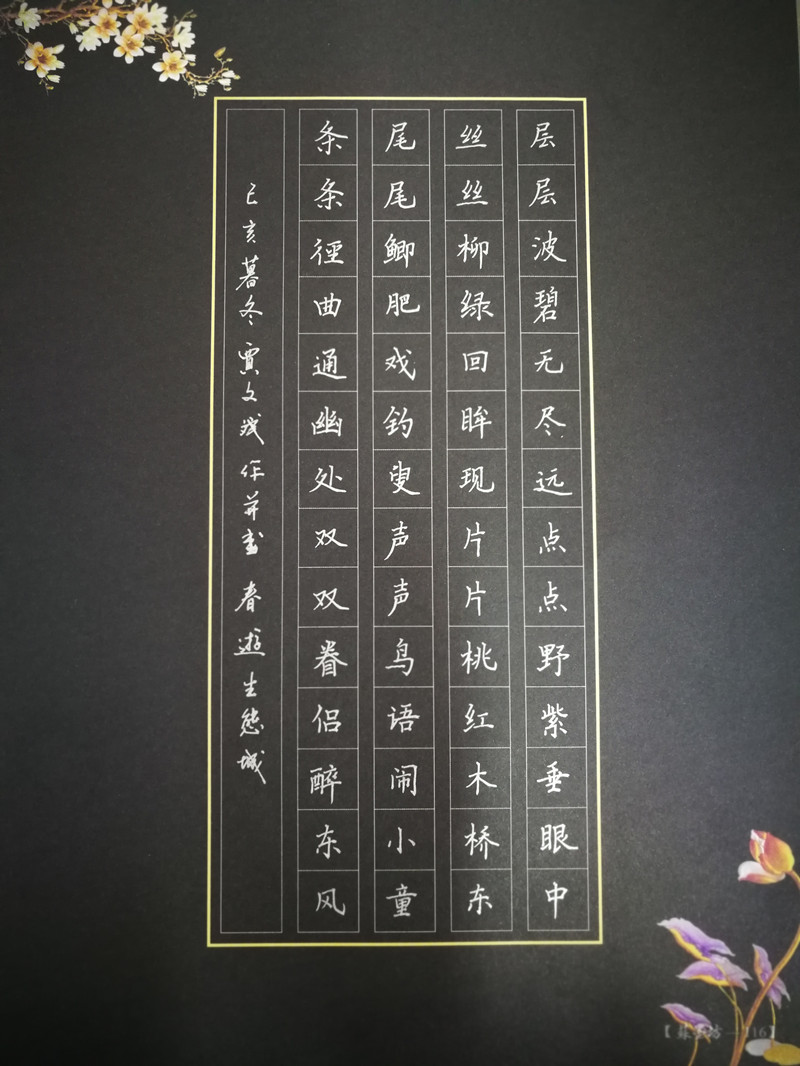 层层波碧无尽远点点野紫垂眼中
丝丝柳绿回眸现片片桃红木桥东
尾尾鲫肥戏钓叟声声鸟语闹小童
条条徑曲通幽处双双眷侣醉东风
己亥暮冬 賈文 作并书 春游生態城